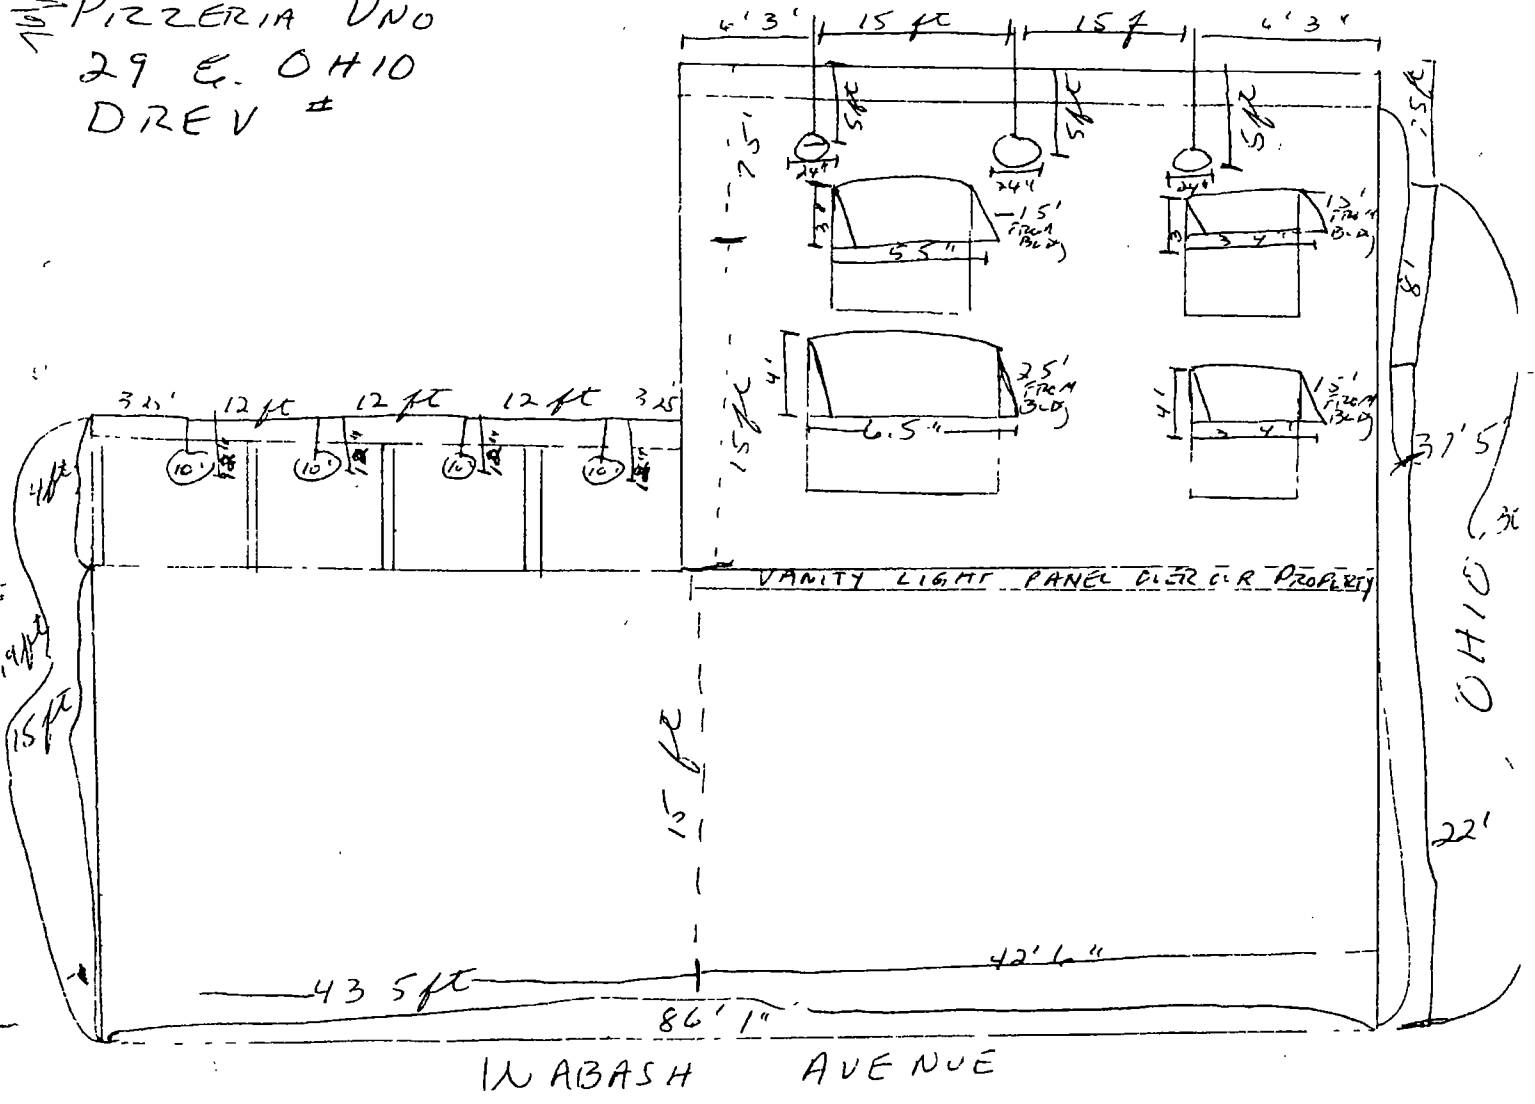 PIZZERIA UNO
29 E. OHIO
DREV #
4' 3'
15 ft
15 f
4' 3"
5ft
5ft
5ft
7.5'
24"
24"
24"
3'
5 5"
15'
FROM
BLDG
3
3 4"
FROM
BLDG
8'
4'
6.5"
25'
FROM
BLDG
4'
3 4"
15'
FROM
BLDG
37' 5
325'
12 ft
12 ft
12 ft
325
10'
10'
10'
10'
4ft
15ft
VANITY LIGHT PANEL OVER OUR PROPERTY
15ft
15 ft
OHIO
22'
43 5ft
42' 6"
86' 1"
WABASH AVENUE